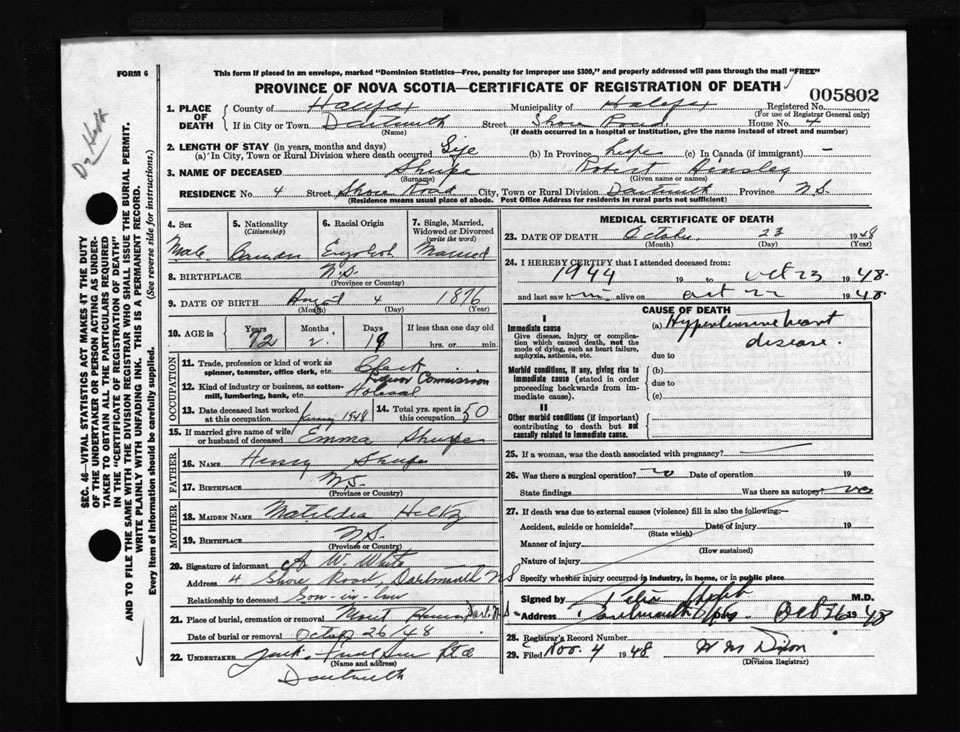 FORM 6
This form if placed in an envelope, marked "Dominion Statistics—Free, penalty for improper use $300," and properly addressed will pass through the mail "FREE"
PROVINCE OF NOVA SCOTIA—CERTIFICATE OF REGISTRATION OF DEATH
005802
1. PLACE OF DEATH County of Halifax Municipality of Halifax Registered No. (For use of Registrar General only)
If in City or Town Dartmouth Street Shore Road House No. 4
(If death occurred in a hospital or institution, give the name instead of street and number)
2. LENGTH OF STAY (in years, months and days)
(a) In City, Town or Rural Division where death occurred Life (b) In Province Life (c) In Canada (if immigrant) —
3. NAME OF DECEASED Robert Ainsley
(Surname) (Given name or names)
RESIDENCE No. 4 Street Shore Road City, Town or Rural Division Dartmouth Province N.S.
(Residence means usual place of abode. Post Office Address for residents in rural parts not sufficient)
4. Sex Male
5. Nationality (Citizenship)
6. Racial Origin English
7. Single, Married, Widowed or Divorced (write the word) Married
8. BIRTHPLACE N.S.
(Province or Country)
9. DATE OF BIRTH August 4 1876
(Month) (Day) (Year)
10. AGE in Years 72 Months 2 Days 19 If less than one day old hrs. or min.
OCCUPATION
11. Trade, profession or kind of work as spinner, teamster, office clerk, etc. Clerk
12. Kind of industry or business, as cotton-mill, lumbering, bank, etc. Liquor Commission
13. Date deceased last worked at this occupation 1948
14. Total yrs. spent in this occupation 50
15. If married give name of wife or husband of deceased Emma
FATHER
16. NAME Henry
17. BIRTHPLACE N.S.
(Province or Country)
MOTHER
18. MAIDEN NAME Matildia
19. BIRTHPLACE N.S.
(Province or Country)
20. Signature of informant W. White
Address 4 Shore Road, Dartmouth NS
Relationship to deceased Son-in-law
21. Place of burial, cremation or removal Mount Dart. N.S
Date of burial or removal Oct 26/48
22. UNDERTAKER Ltd
(Name and address)
Dartmouth
MEDICAL CERTIFICATE OF DEATH
23. DATE OF DEATH October 23 1948
(Month) (Day) (Year)
24. I HEREBY CERTIFY that I attended deceased from:
1944 19 to Oct 23 1948
and last saw him alive on Oct 22 1948
CAUSE OF DEATH
I
Immediate cause
Give disease, injury or complication which caused death, not the mode of dying, such as heart failure, asphyxia, asthenia, etc.
(a) Hypertensive heart disease.
due to
Morbid conditions, if any, giving rise to immediate cause (stated in order proceeding backwards from immediate cause).
(b)
due to
(c)
II
Other morbid conditions (if important) contributing to death but not causally related to immediate cause.
25. If a woman, was the death associated with pregnancy? —
26. Was there a surgical operation? no Date of operation 19
State findings Was there an autopsy?
27. If death was due to external causes (violence) fill in also the following:—
Accident, suicide or homicide? Date of injury 19
(State which)
Manner of injury
(How sustained)
Nature of injury
Specify whether injury occurred in industry, in home, or in public place
Signed by M.D.
Address Dartmouth Date Oct 26 1948
28. Registrar's Record Number
29. Filed Nov. 4 1948 W M Dixon
(Division Registrar)
SEC. 46—VITAL STATISTICS ACT MAKES IT THE DUTY
OF THE UNDERTAKER OR PERSON ACTING AS UNDER-
TAKER TO OBTAIN ALL THE PARTICULARS REQUIRED
IN THE "CERTIFICATE OF REGISTRATION OF DEATH"
AND TO FILE THE SAME WITH THE DIVISION REGISTRAR WHO SHALL ISSUE THE BURIAL PERMIT.
WRITE PLAINLY WITH UNFADING INK. THIS IS A PERMANENT RECORD.
Every item of information should be carefully supplied. (See reverse side for instructions.)